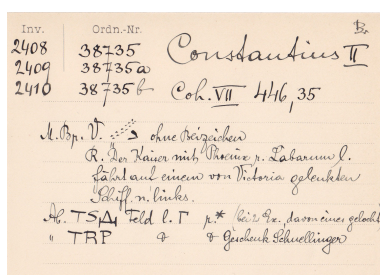 Inv. Ordn.-Nr. Br.
2408 38735 Constantius II
2409 38735a
2410 38735b Coh. VII 446,35
M. Br. V. ohne Beizeichen
R. Der Kaiser mit Phoenix r. Labarum l.
fährt auf einem von Victoria gelenkten
Schiff n. links.
Ab. TSΔ Feld l. Γ r.* (bei 2 Ex. davon eines gelocht
" TRP Geschenk Schnellinger